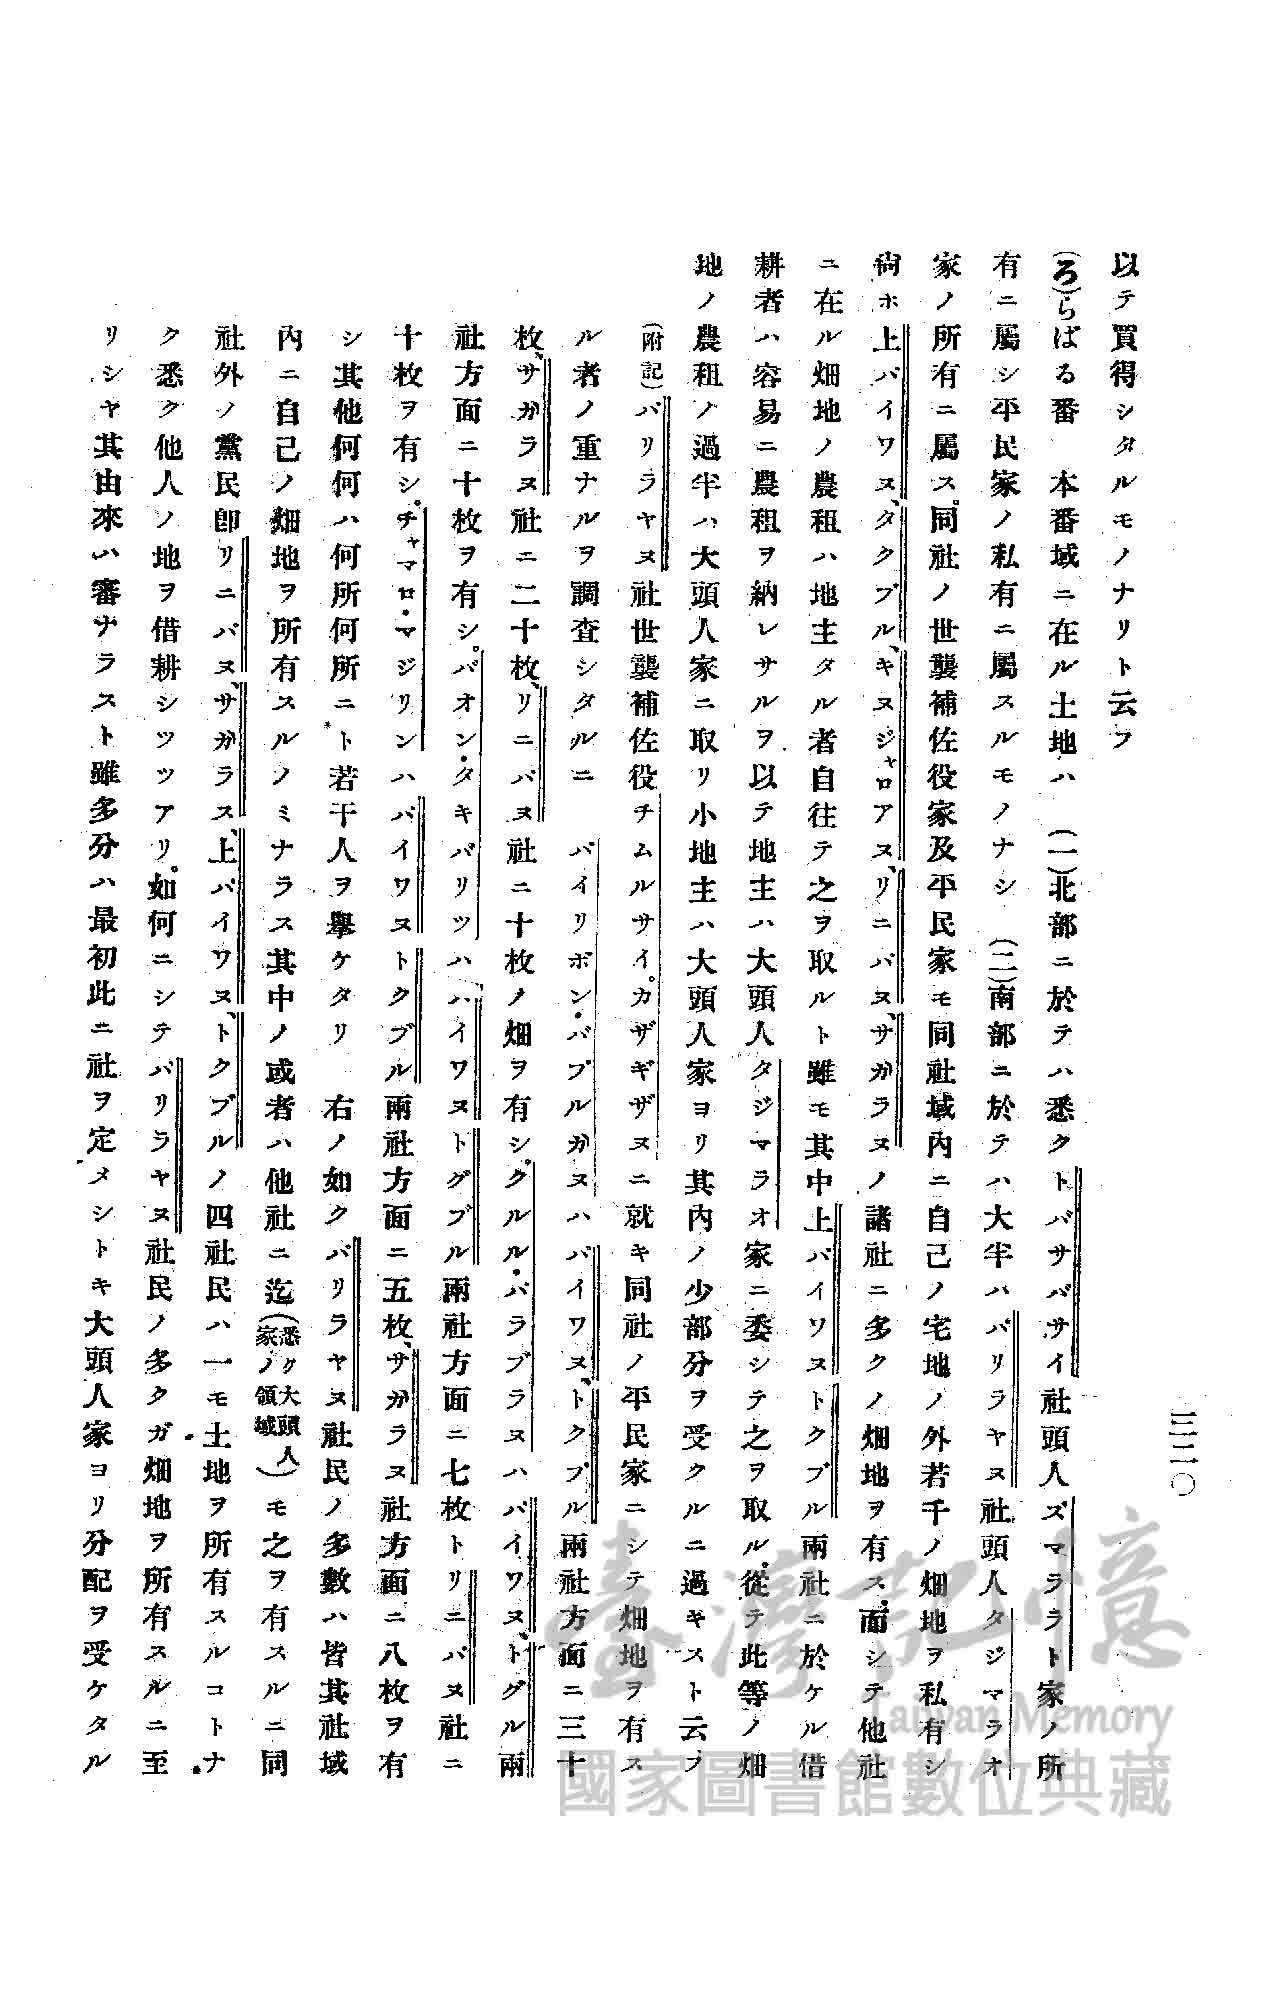 三二〇
以テ買得シタルモノナリト云フ
(ろ)らばる番　本番域ニ在ル土地ハ　(一)北部ニ於テハ悉クトバサバサイ社頭人ズマララト家ノ所
有ニ屬シ平民家ノ私有ニ屬スルモノナシ　(二)南部ニ於テハ大半ハバリラヤヌ社頭人タジマラオ
家ノ所有ニ屬ス。同社ノ世襲補佐役家及平民家モ同社域内ニ自己ノ宅地ノ外若干ノ畑地ヲ私有シ
尙ホ上バイワヌ、タクブル、キヌジャロアヌ、リニバヌ、サガラヌノ諸社ニ多クノ畑地ヲ有ス、面シテ他社
ニ在ル畑地ノ農租ハ地主タル者自往テ之ヲ取ルト雖モ其中上バイワヌトクブル兩社ニ於ケル借
耕者ハ容易ニ農租ヲ納レサルヲ以テ地主ハ大頭人タジマラオ家ニ委シテ之ヲ取ル。從テ此等ノ畑
地ノ農租ノ過半ハ大頭人家ニ取リ小地主ハ大頭人家ヨリ其内ノ少部分ヲ受クルニ過キスト云フ
(附記)バリラヤヌ社世襲補佐役チムルサイ。カザギザヌニ就キ同社ノ平民家ニシテ畑地ヲ有ス
ル者ノ重ナルヲ調査シタルニ　バイリボン・バブルガヌハバイワヌ、トクブル兩社方面ニ三十
枚、サガラヌ社ニ二十枚、リニバヌ社ニ十枚ノ畑ヲ有シ。クルル・バラブラヌハバイワヌ、トグル兩
社方面ニ十枚ヲ有シ。バオン・タキバリツハハイワヌトグブル兩社方面ニ七枚トリニバヌ社ニ
十枚ヲ有シ。チャマロ・マジリンハバイワヌトクブル兩社方面ニ五枚、サガラヌ社方面ニ八枚ヲ有
シ其他何何ハ何所何所ニト若干人ヲ擧ケタリ　右ノ如クバリラヤヌ社民ノ多數ハ皆其社域
内ニ自己ノ畑地ヲ所有スルノミナラス其中ノ或者ハ他社ニ迄(悉ク大頭人家ノ領域)モ之ヲ有スルニ同
社外ノ黨民卽リニバヌ、サガラス、上バイワヌ、トクブルノ四社民ハ一モ土地ヲ所有スルコトナ
ク悉ク他人ノ地ヲ借耕シツツアリ。如何ニシテバリラヤヌ社民ノ多クガ畑地ヲ所有スルニ至
リシヤ其由來ハ審ナラスト雖多分ハ最初此ニ社ヲ定メシトキ大頭人家ヨリ分配ヲ受ケタル
臺灣記憶
Taiwan Memory
國家圖書館數位典藏